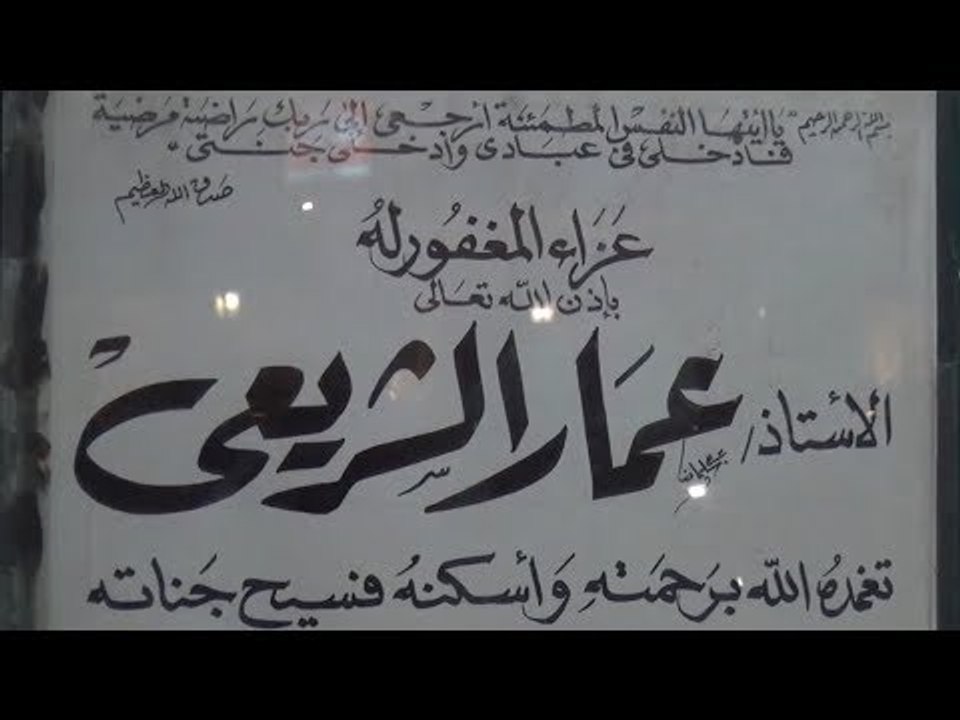 بسم الله الرحمن الرحيم "يا ايتها النفس المطمئنة أرجعى إلى ربك راضية مرضية
فادخلى فى عبادى وادخلى جنتى"
صدق الله العظيم
عَزَاء المغفُور لهُ
بإذن الله تعالى
الأستاذ/ عمار الشريعى
تغمدهُ الله برَحمَتهِ وَأسكنهُ فسيح جَناته